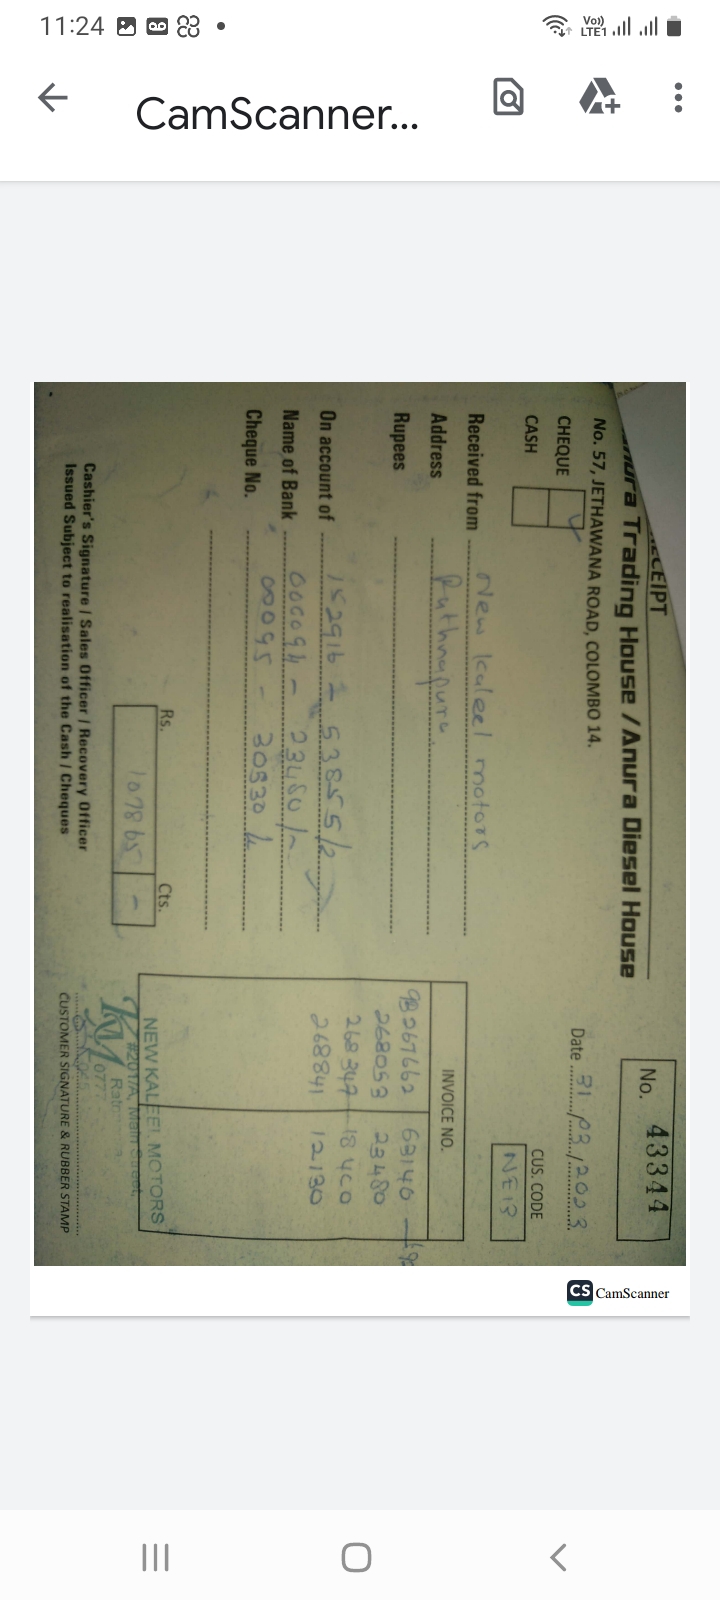 11:24
Vo))
LTE1
CamScanner...
No. 43344
Trading House / Anura Diesel House
No. 57, JETHAWANA ROAD, COLOMBO 14.
CHEQUE
CASH
Date 31/03/2023
CUS. CODE
NE13
Received from New kaleel motors
Address Rathnapura.
Rupees
On account of 152916 - 53855/=
Name of Bank 000094 - 23480/=
Cheque No. 00095 - 30530/=
INVOICE NO.
267662 63140
268053 23480
268347 18400
268841 12130
Rs. Cts.
107865 -
NEW KALEEL MOTORS
#201/A, Main Street,
KM
0777
Cashier's Signature / Sales Officer / Recovery Officer
Issued Subject to realisation of the Cash / Cheques
CUSTOMER SIGNATURE & RUBBER STAMP
CS CamScanner